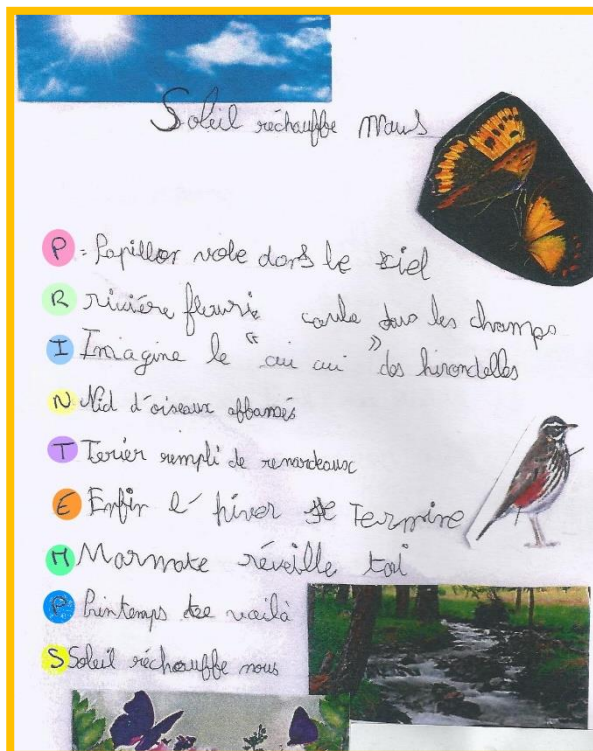 Soleil réchauffe nous
P = Papillon vole dans le ciel
R rivière fleurie coule dans les champs
I Imagine le "cui cui" des hirondelles
N Nid d'oiseaux affamés
T Terier rempli de renardeaux
E Enfin l'hiver se Termine
M Marmote réveille toi
P Printemps te voilà
S Soleil réchauffe nous